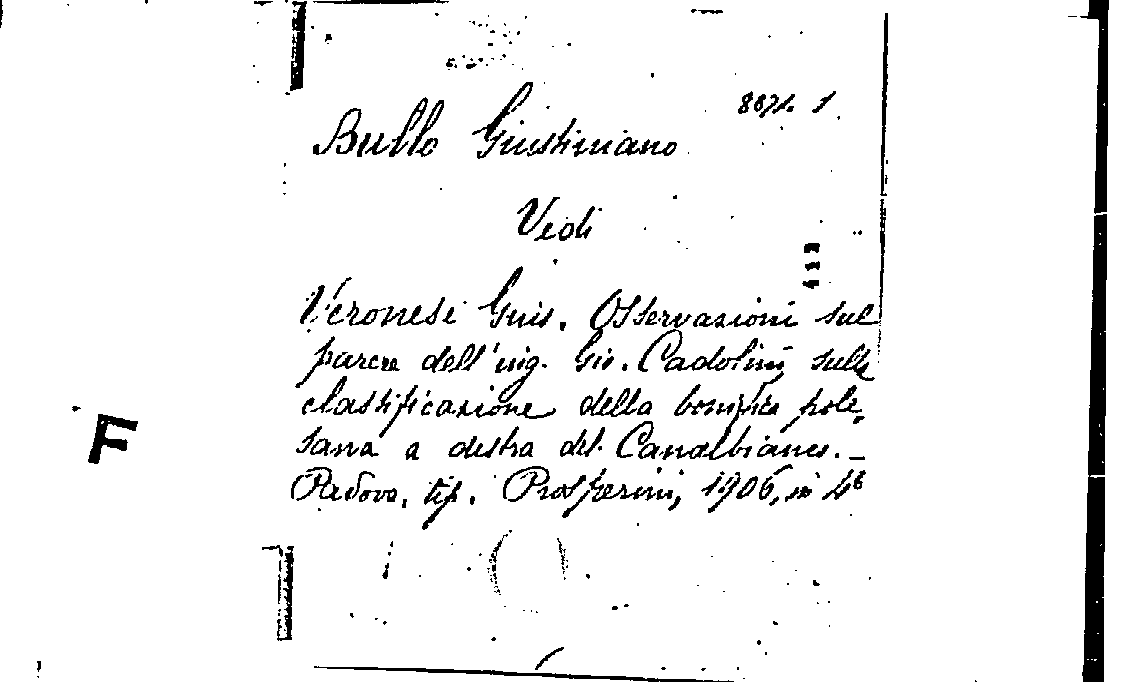 8871. 1
Bullo Giustiniano
Vedi
Veronesi Gius. Osservazioni sul
parere dell'ing. Gio. Cadolini sulla
classificazione della bonifica pole,
sana a destra del Canalbianco. _
Padova, tip. Prosperini, 1906, in 4°
F